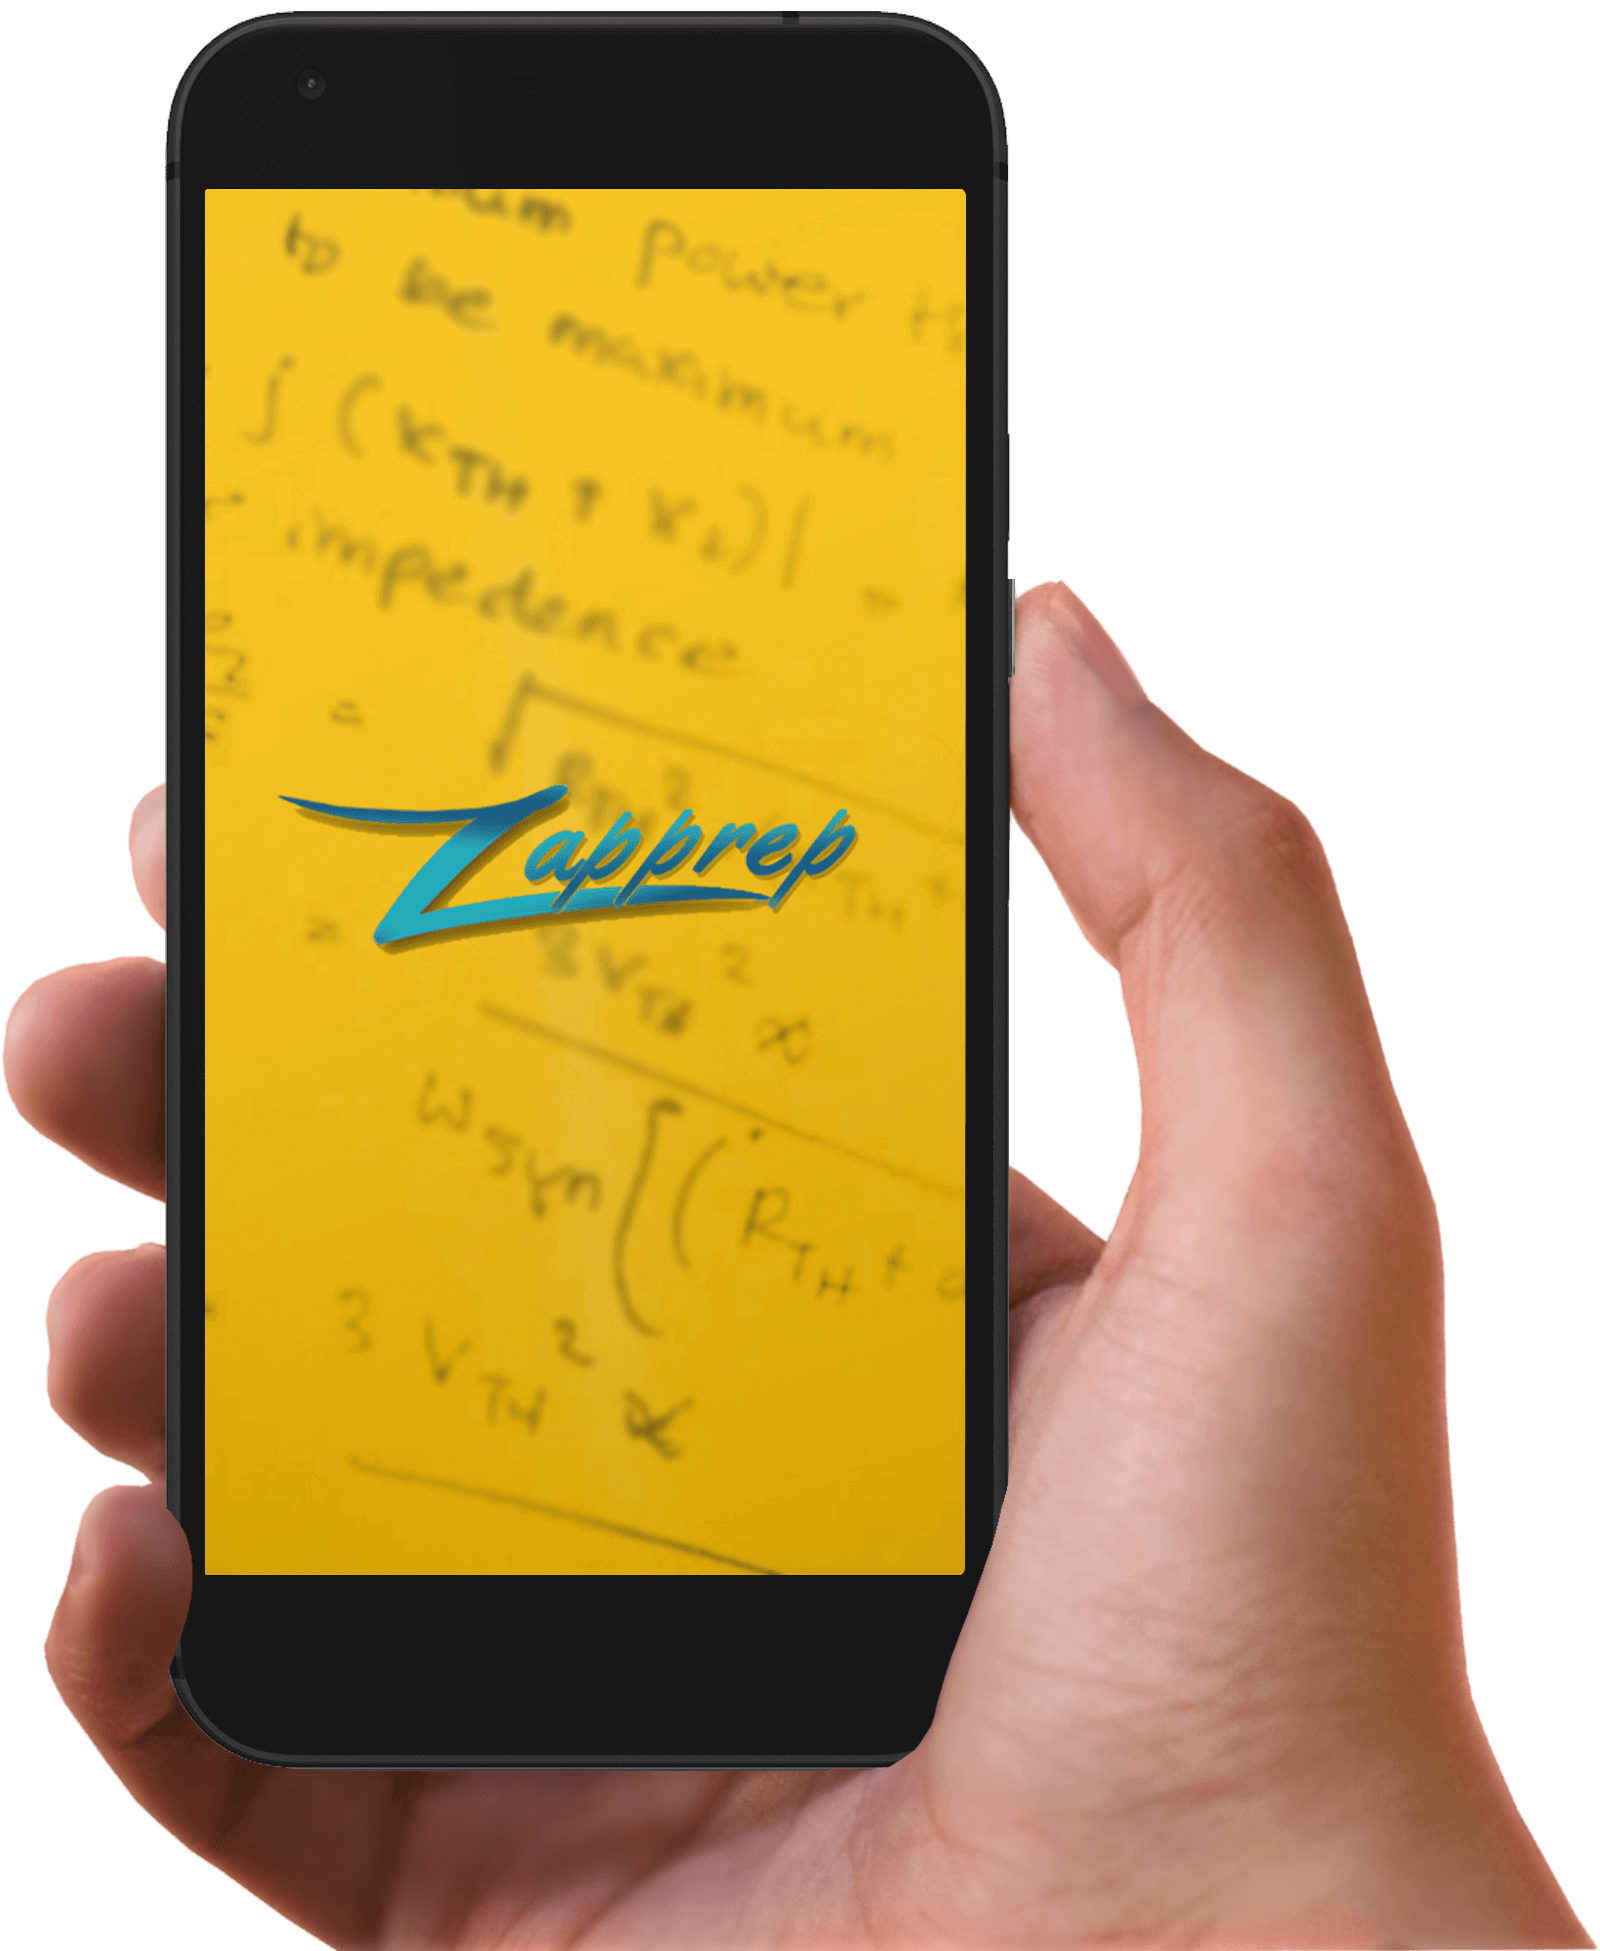 power
to be maximum
j (XTH + XL)| =
impedence
=
Zapprep
TH +
= 3VTH² x
Wsyn [(RTH +
3 VTH² x